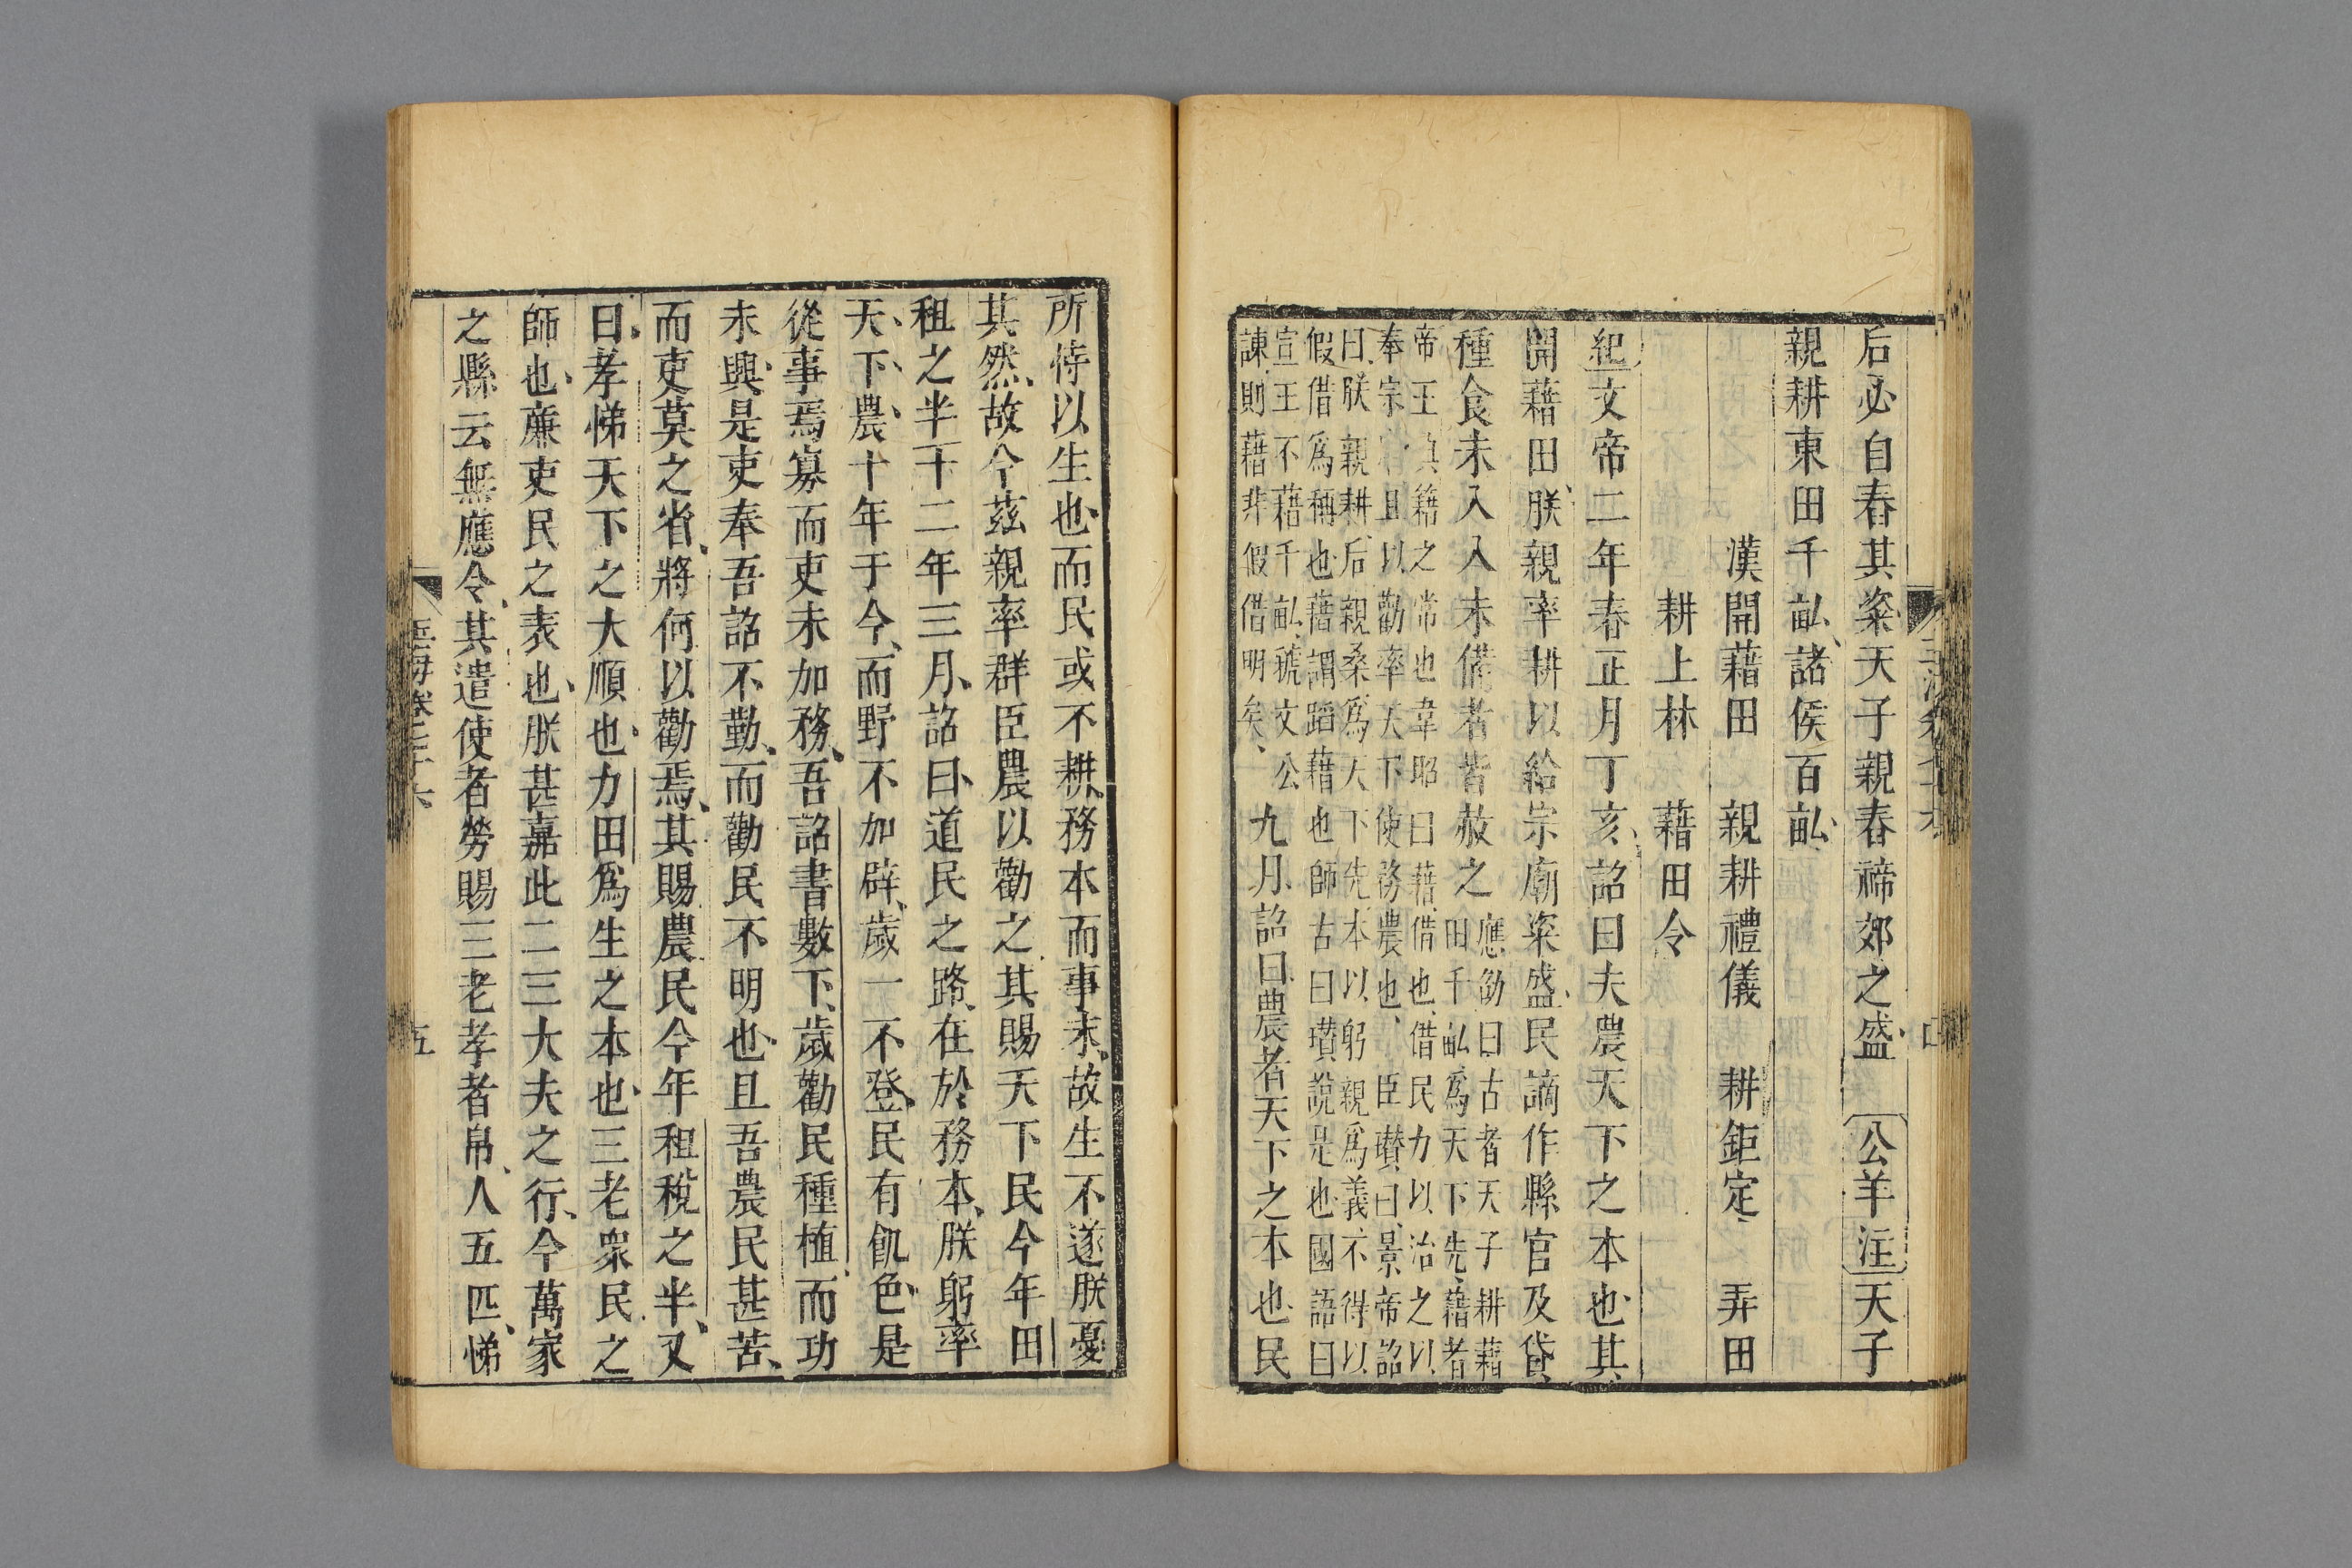 后必自舂其粢天子親舂禘郊之盛公羊注天子
親耕東田千畝諸侯百畝
漢開藉田 親耕禮儀 耕鉅定 弄田
耕上林 藉田令
紀文帝二年春正月丁亥詔曰夫農天下之本也其
開藉田朕親率耕以給宗廟粢盛民謫作縣官及貸
種食未入入未備者皆赦之應劭曰古者天子耕藉
田千畝爲天下先藉者
帝王典籍之常也韋昭曰藉借也借民力以治之以
奉宗廟且以勸率天下使務農也臣瓚曰景帝詔
曰朕親耕后親桑爲天下先本以躬親爲義不得以
假借爲稱也藉謂蹈藉也師古曰瓚說是也國語曰
宣王不藉千畝虢文公
諫則藉非假借明矣九月詔曰農者天下之本也民
所恃以生也而民或不耕務本而事末故生不遂朕憂
其然故今茲親率群臣農以勸之其賜天下民今年田
租之半十二年三月詔曰道民之路在於務本朕躬率
天下農十年于今而野不加辟歲一不登民有飢色是
從事焉寡而吏未加務吾詔書數下歲勸民種植而功
未興是吏奉吾詔不勤而勸民不明也且吾農民甚苦
而吏莫之省將何以勸焉其賜農民今年租稅之半又
曰孝悌天下之大順也力田爲生之本也三老眾民之
師也廉吏民之表也朕甚嘉此二三大夫之行今萬家
之縣云無應令其遣使者勞賜三老孝者帛人五匹悌
五